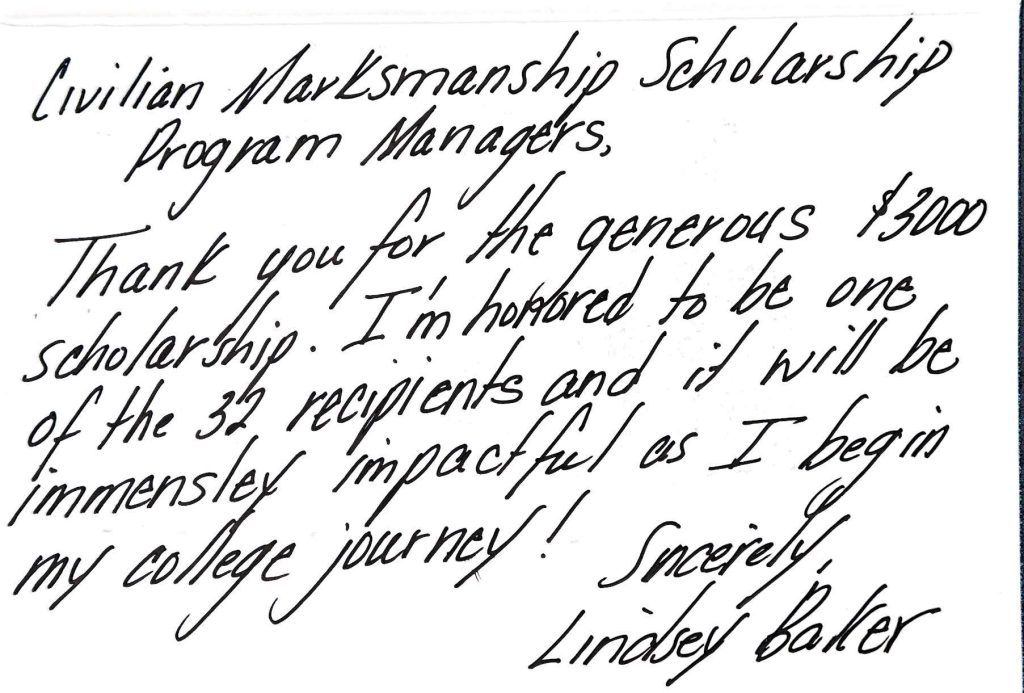 Civilian Marksmanship Scholarship
Program Managers,
Thank you for the generous $3000
scholarship. I'm honored to be one
of the 32 recipients and it will be
immensley impactful as I begin
my college journey!
Sincerely,
Lindsey Baker